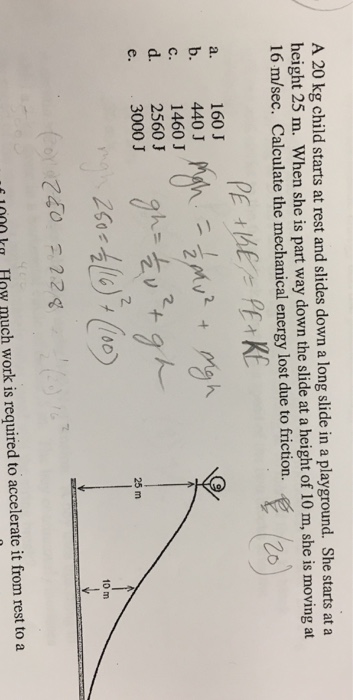 A 20 kg child starts at rest and slides down a long slide in a playground. She starts at a
height 25 m. When she is part way down the slide at a height of 10 m, she is moving at
16 m/sec. Calculate the mechanical energy lost due to friction.
(20)
PE + KE = PE + KE
a. 160 J
b. 440 J
c. 1460 J
d. 2560 J
e. 3000 J
mgh = ½mv² + mgh
gh = ½v² + gh
250 = ½(16)² + (100)
mgh
250 = 228
25 m
10 m
1000 kg How much work is required to accelerate it from rest to a